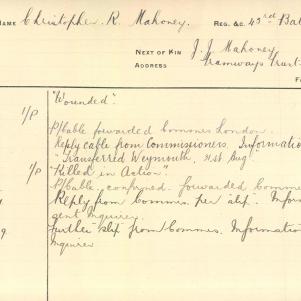 NAME Christopher. R. Mahoney. REG. &C. 43rd Bat
NEXT OF KIN J. J. Mahoney,
ADDRESS Tramways Trust
1/P "Wounded".
P/Cable forwarded Commnr London.
Reply cable from Commissioners. Information
"Transferred Weymouth, Aug"
1/P "Killed in Action"
P/Cable. confirmed. forwarded Comme
Reply from Commrs. per slip. Infor
gent Inquirer.
9 Further slip from Commrs. Information
Inquirer